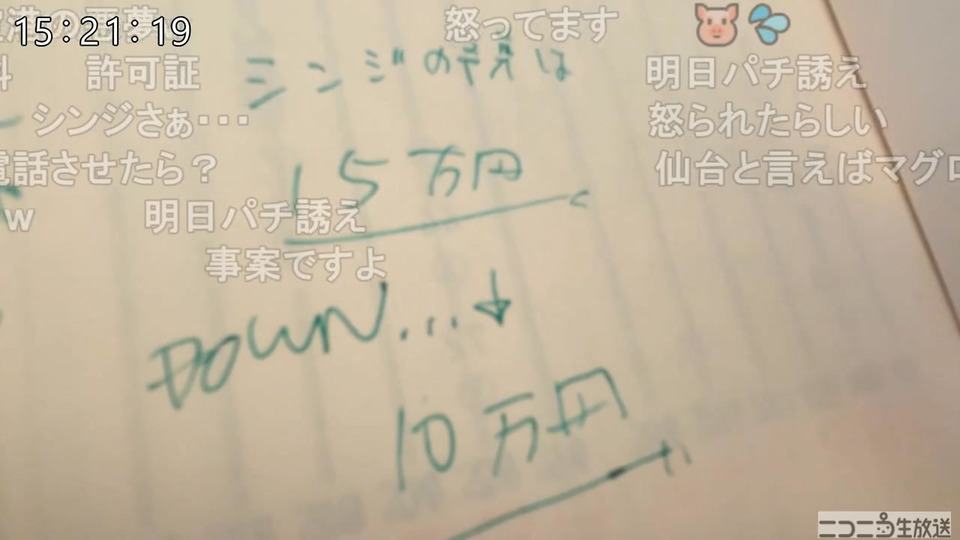 15:21:19
怒ってます
許可証
シンジの
は
明日パチ誘え
シンジさぁ・・・
怒られたらしい
電話させたら？
15万円
仙台と言えばマグロ
w
明日パチ誘え
事案ですよ
DOWN...↓
10万円
ニコニコ生放送